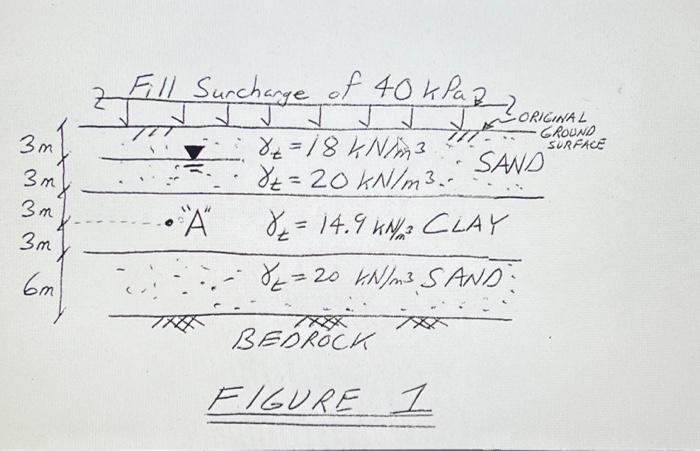 Fill Surcharge of 40 kPa
ORIGINAL
GROUND
SURFACE
3m
γt = 18 kN/m3
SAND
3m
γt = 20 kN/m3
3m
"A"
γt = 14.9 kN/m3 CLAY
3m
6m
γt = 20 kN/m3 SAND
BEDROCK
FIGURE 1